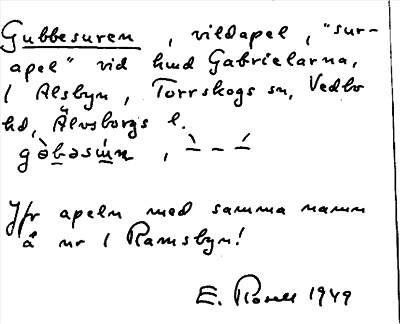 Gubbesuren, vildapel, "sur-
apel" vid hmd Gabrielarna,
i Alsbyn, Torrskogs sn, Vedbo
hd, Älvsborgs l.
Jfr apeln med samma namn
å nr 1 Ramsbyn!
E. Rosell 1949